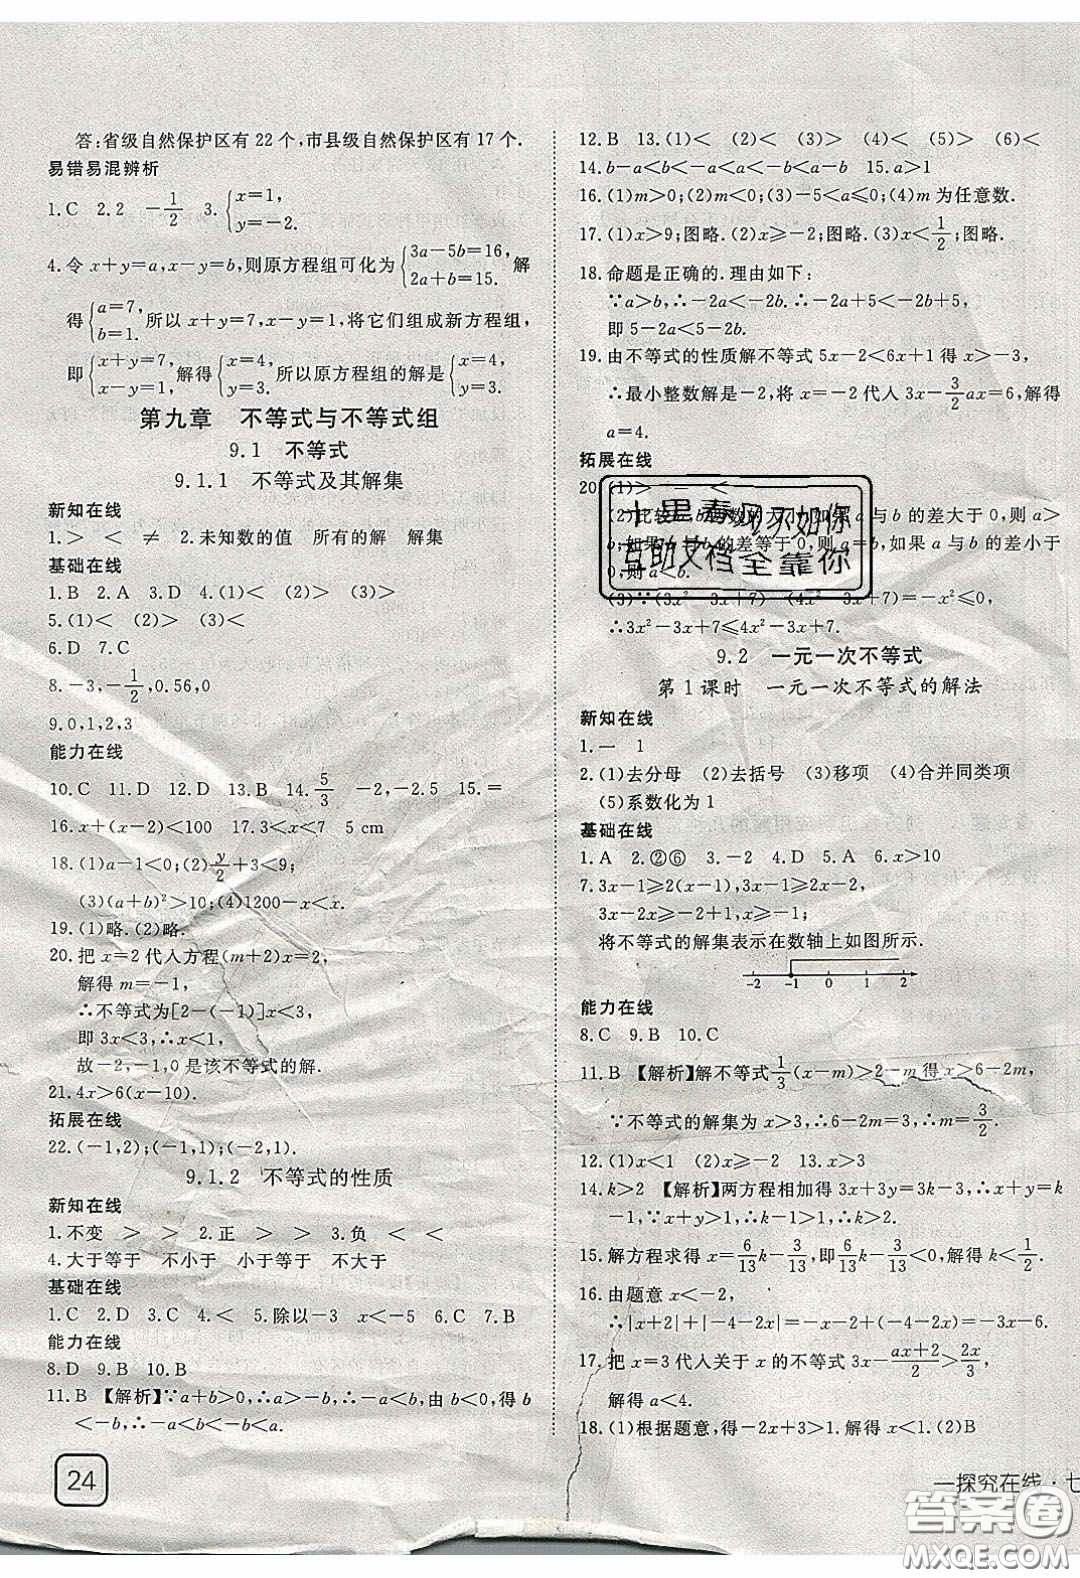 答:省级自然保护区有 22 个,市县级自然保护区有 17 个.
易错易混辨析
1.C 2.2 -1/2 3.{x=1, y=-2.
4.令 x+y=a,x-y=b,则原方程组可化为{3a-5b=16, 2a+b=15. 解
得{a=7, b=1. 所以 x+y=7,x-y=1,将它们组成新方程组,
即{x+y=7, x-y=1, 解得{x=4, y=3. 所以原方程组的解是{x=4, y=3.
第九章 不等式与不等式组
9.1 不等式
9.1.1 不等式及其解集
新知在线
1.> < ≠ 2.未知数的值 所有的解 解集
基础在线
1.B 2.A 3.D 4.(1)< (2)> (3)> (4)<
5.(1)< (2)> (3)<
6.D 7.C
8.-3,-1/2,0.56,0
9.0,1,2,3
能力在线
10.C 11.D 12.D 13.B 14.5/3 -2,-2.5 15.=
16.x+(x-2)<100 17.3<x<7 5 cm
18.(1)a-1<0;(2)y/2+3<9;
(3)(a+b)²>10;(4)1200-x<x.
19.(1)略.(2)略.
20.把 x=2 代入方程(m+2)x=2,
解得 m=-1,
∴不等式为[2-(-1)]x<3,
即 3x<3,∴x<1,
故-2,-1,0是该不等式的解.
21.4x>6(x-10).
拓展在线
22.(-1,2);(-1,1);(-2,1).
9.1.2 不等式的性质
新知在线
1.不变 > > 2.正 > > 3.负 < <
4.大于等于 不小于 小于等于 不大于
基础在线
1.C 2.D 3.C 4.< 5.除以-3 x<-5 6.C 7.B
能力在线
8.D 9.B 10.B
11.B 【解析】∵a+b>0,∴a>-b,∴-a<b.由 b<0,得 b
<-b,∴-a<b<-b<a.
24
12.B 13.(1)< (2)< (3)> (4)<
14.b-a<b<-a<a<-b<a-b 15.a>1
16.(1)m>0;(2)m<0;(3)-5<a≤0;(4)m 为任意数.
17.(1)x>9;图略.(2)x>-2;图略.(3)x<1/2;图略.
18.命题是正确的.理由如下:
∵a>b,∴-2a<-2b.∴-2a+5<-2b+5,
即 5-2a<5-2b.
19.由不等式的性质解不等式 5x-2<6x+1 得 x>-3,
∴最小整数解是-2,将 x=-2 代入 3x-3/2ax=6,
得 a=4.
拓展在线
20.(1)> = <
(2)比较 a,b 两数的大小,如果 a 与 b 的差大于 0,则 a>
b;如果 a 与 b 的差等于 0,则 a=b,如果 a 与 b 的差小于
0,则 a<b.
(3)∵(3x²-3x+7)-(4x²-3x+7)=-x²≤0,
∴3x²-3x+7≤4x²-3x+7.
9.2 一元一次不等式
第 1 课时 一元一次不等式的解法
新知在线
1.一 1
2.(1)去分母 (2)去括号 (3)移项 (4)合并同类项
(5)系数化为 1
基础在线
1.A 2.②⑥ 3.-2 4.D 5.A 6.x>10
7.3x-1≥2(x-1),3x-1≥2x-2,
3x-2x≥-2+1,x≥-1;
将不等式的解集表示在数轴上如图所示.
-2 -1 0 1 2
能力在线
8.C 9.B 10.C
11.B 【解析】解不等式1/3(x-m)>2-m 得 x>6-2m,
∵不等式的解集为 x>3,∴6-2m=3,∴m=3/2.
12.(1)x<1 (2)x≥-2 13.x>3
14.k>2 【解析】两方程相加得 3x+3y=3k-3,∴x+y=k
-1,∵x+y>1,∴k-1>1,∴k>2.
15.解方程求得 x=6/13k-3/13,即6/13k-3/13<0,解得 k<1/2.
16.由题意 x<-2,
∴|x+2|+|-4-2x|=-x-2-4-2x=-3x-6.
17.把 x=3 代入关于 x 的不等式 3x-(ax+2)/2>2x/3,
解得 a<4.
18.(1)根据题意,得-2x+3>1,解得 x<1.(2)B
十里春风不如你
互助文档全靠你
一探究在线·七
答案圈
MXQE.COM